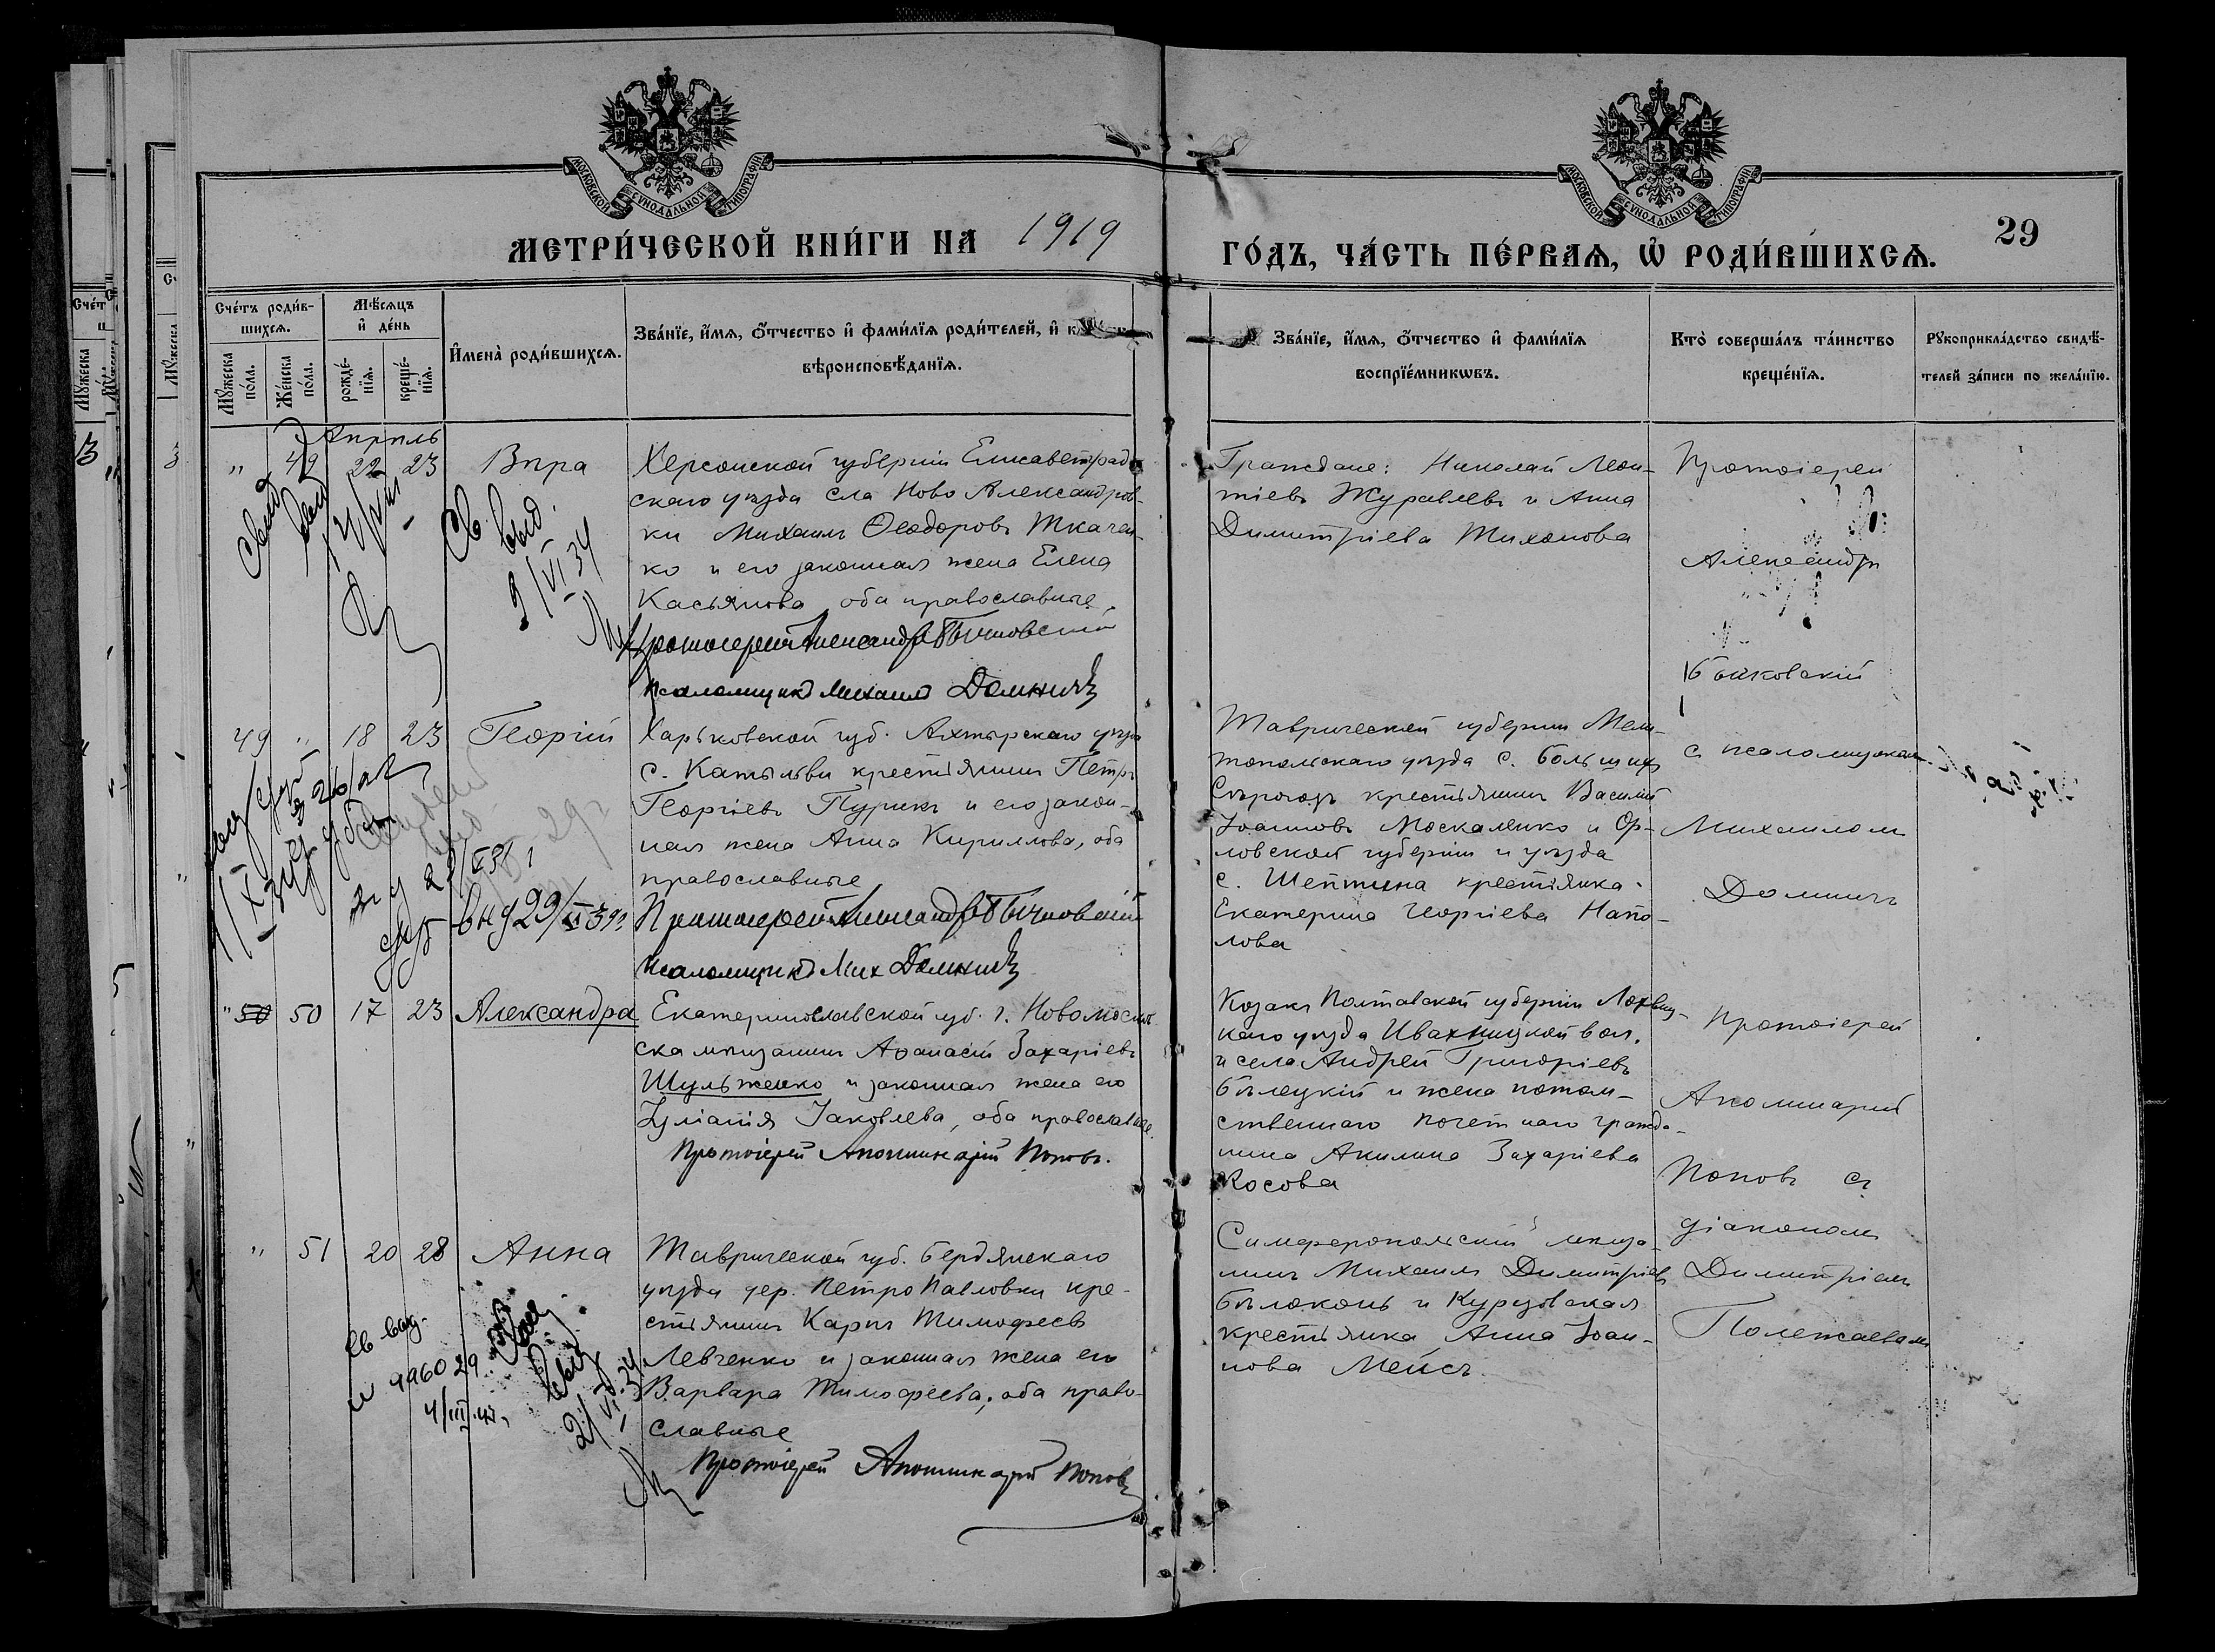 МОСКОВСКОЙ СѴНОДАЛЬНОЙ ТИПОГРАФІИ
МОСКОВСКОЙ СѴНОДАЛЬНОЙ ТИПОГРАФІИ
МЕТРИ́ЧЕСКОЙ КНИ́ГИ НА 1919
ГО́ДЪ, ЧА́СТЬ ПЕ́РВАѦ, Ѽ РОДИ́ВШИХСѦ.
29
Сче́тъ роди́в-
шихсѧ.
Мꙋ́жеска
по́ла.
Же́нска
по́ла.
Мѣ́сѧцъ
и҆ де́нь
рожде́-
нїѧ.
креще́-
нїѧ.
И҆мена̀ роди́вшихсѧ.
Зва́нїе, и҆́мѧ, ѻ҆́тчество и҆ фами́лїѧ роди́телей, и҆ к
вѣроисповѣ́данїѧ.
Зва́нїе, и҆́мѧ, ѻ҆́тчество и҆ фами́лїѧ
воспрїе́мникѡвъ.
Кто̀ соверша́лъ та́инство
креще́нїѧ.
Рꙋкоприкла́дство свидѣ́-
телей за́писи по жела́нїю.
Апрѣль
" 49 22 23 Вѣра
Херсонской губерніи Елисаветград
скаго уѣзда села Ново Александров-
ки Михаилъ Ѳеодоровъ Ткачен-
ко и его законная жена Елена
Касьянова, оба православные.
Протоіерей Александръ Бычковскій
Псаломщикъ Михаилъ Домничъ
Св. выд.
2/VI 34
Граждане: Николай Леон-
тіевъ Журавлевъ и Анна
Димитріева Тихонова
Протоіерей
Александръ
Бычковскій
съ псаломщикомъ
Михаиломъ
Домничъ
49 " 18 23 Георгій
Харьковской губ. Ахтырскаго уѣзда
с. Кательви крестьянинъ Петръ
Георгіевъ Пурикъ и его закон-
ная жена Анна Кириллова, оба
православные
Протоіерей Александръ Бычковскій
Псаломщикъ Мих Домничъ
Таврической губерніи Мели-
топольскаго уѣзда с. Большихъ
Сѣрогозъ крестьянинъ Василій
Іоанновъ Москаленко и Ор-
ловской губерніи и уѣзда
с. Шептина крестьянка
Екатерина Георгіева Напо-
лова
" 50 50 17 23 Александра
Екатеринославской губ. г. Новомосков
ска мѣщанинъ Аѳанасій Захаріевъ
Шульженко и законная жена его
Іуліанія Іаковлева, оба православные.
Протоіерей Аполлинарій Поповъ.
Козакъ Полтавской губерніи Лохвиц-
каго уѣзда Ивахницкой вол.
и села Андрей Григоріевъ
Бѣлецкій и жена потом-
ственнаго почетнаго гражда-
нина Акилина Захаріева
Косова
Протоіерей
Аполлинарій
Поповъ съ
діакономъ
Димитріемъ
Полежаевымъ
" 51 20 28 Анна
Таврической губ. Бердянскаго
уѣзда дер. Петропавловки кре-
стьянинъ Карпъ Тимофеевъ
Левченко и законная жена его
Варвара Тимофеева, оба право-
славные
Протоіерей Аполлинарій Поповъ
Св выд.
4/III
Симферопольскій мѣща-
нинъ Михаилъ Димитріевъ
Бѣлоконь и Курузовская
крестьянка Анна Іоан-
нова Мейсъ.